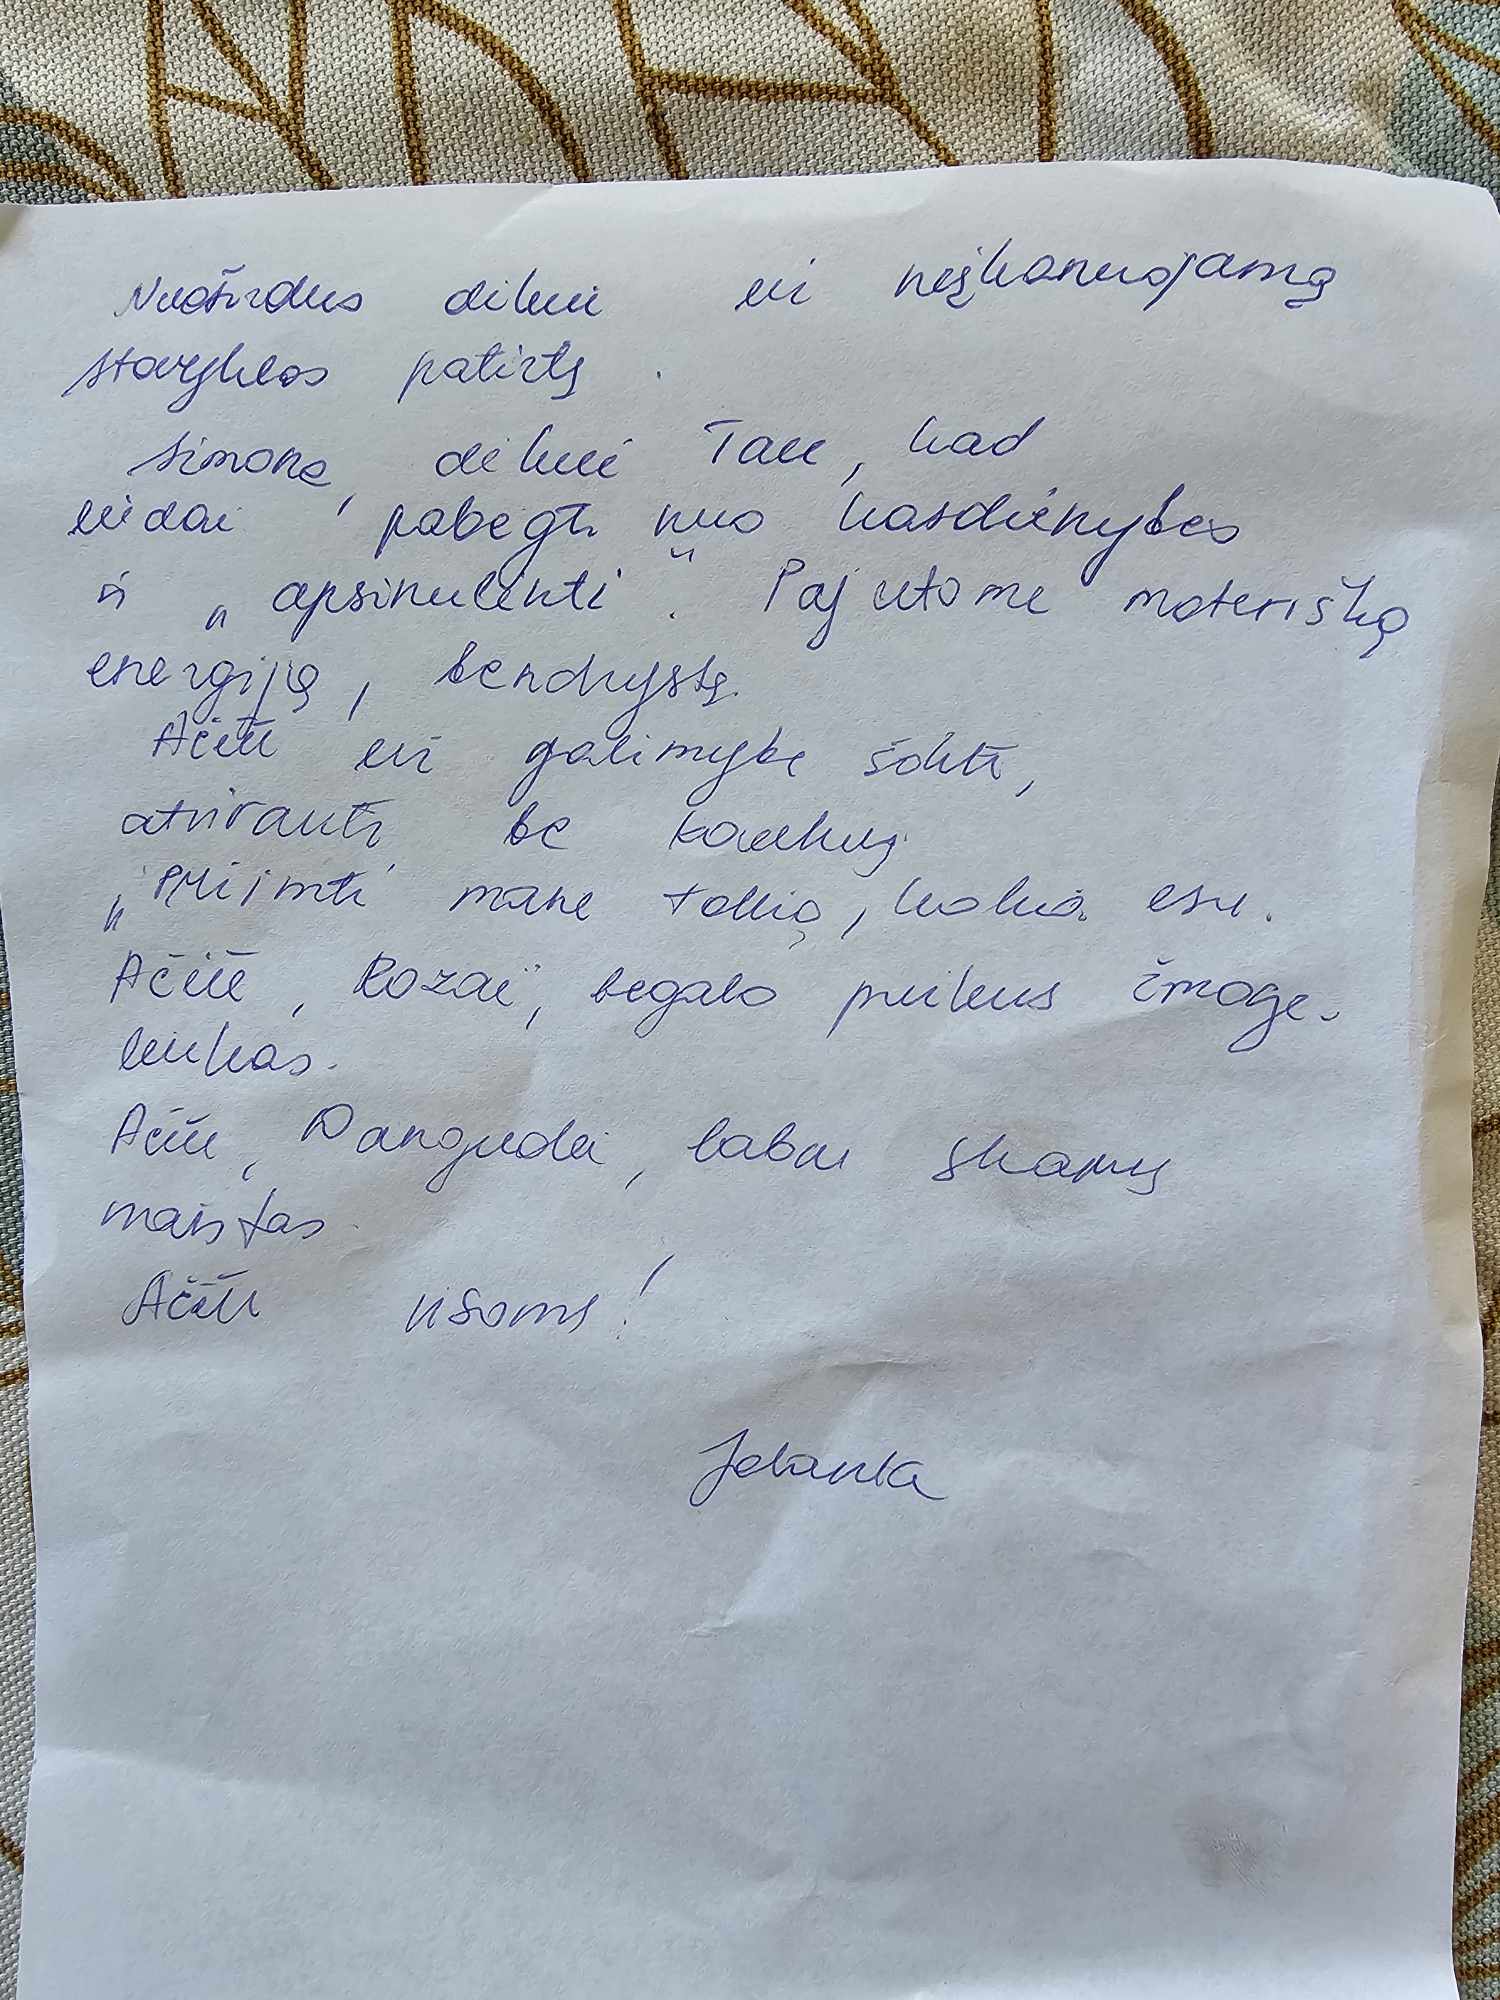 Nuoširdus dėkui už neįkainuojamą
stovyklos patirtį.
Simona, dėkui Tau, kad
leidai pabėgti nuo kasdienybės
ir „apsinulinti". Pajutome moterišką
energiją, bendrystę.
Ačiū už galimybę šokti,
atvirauti be kaukių.
„Priimti mane tokią, kokia esu.
Ačiū, Rozai, begalo puikus žmoge-
liukas.
Ačiū, Dangudei, labai skanus
maistas.
Ačiū visoms!
Jolanta